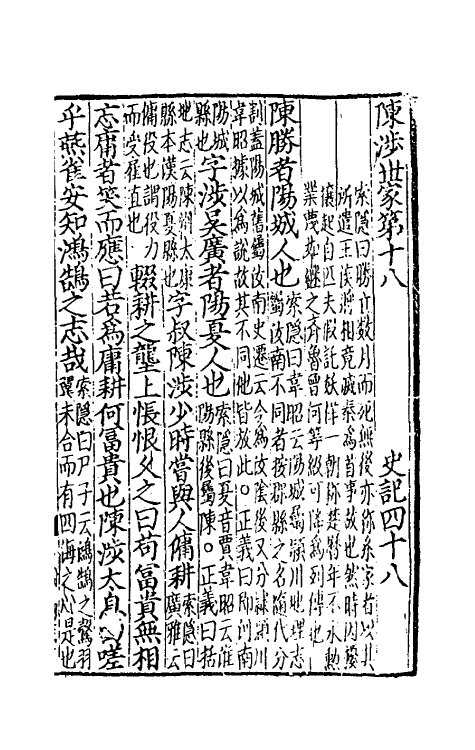 陳涉世家第十八　史記四十八
索隱曰勝立數月而死無後亦稱系家者以其
所遣王侯將相竟滅秦為首事故也然時因擾
攘起自匹夫假託妖祥一朝稱楚曆年不永勳
業蔑如繼之齊魯曾何等級可降為列傳也
陳勝者陽城人也索隱曰韋昭云陽城屬潁川地理志屬汝南不同者按郡縣之名隨代分
割蓋陽城舊屬汝南史遷云今為汝陰後又分隸潁川
韋昭據以為說故其不同他皆放此。正義曰即河南
陽城縣也字涉吳廣者陽夏人也索隱曰夏音賈韋昭云淮陽縣後屬陳。正義曰括
地志云陳州太康縣本漢陽夏縣也字叔陳涉少時嘗與人傭耕索隱曰廣雅云
傭役也謂役力而受雇直也輟耕之壟上悵恨久之曰苟富貴無相
忘庸者笑而應曰若為庸耕何冨貴也陳涉太息曰嗟
乎燕雀安知鴻鵠之志哉索隱曰尸子云鴻鵠之鷇羽翼未合而有四海之心是也